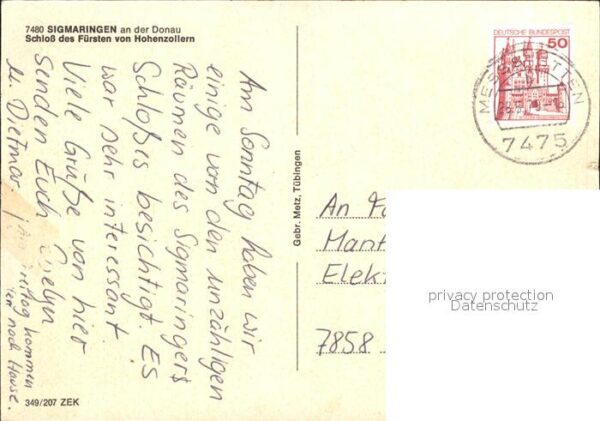 7480 SIGMARINGEN an der Donau
Schloß des Fürsten von Hohenzollern
Am Sonntag haben wir
einige von den unzähligen
Räumen des Sigmaringers
Schloßes besichtigt. Es
war sehr interessant
Viele Grüße von hier
senden Euch
Dietmar.
Freitag kommen
nach Hause.
349/207 ZEK
Gebr. Metz, Tübingen
DEUTSCHE BUNDESPOST
50
7475
An
Elek
7858
privacy protection
Datenschutz